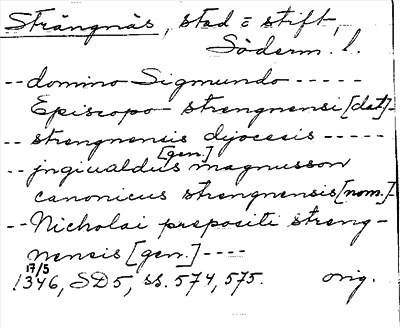 Strängnäs, stad = stift,
Söderm. l.
-- domino Sigmundo -----
Episcopo strengnensi [dat]-
-- strengnensis dyocesis -----
[gen.]
-- jngiualdus magnusson
canonicus strengnensis [nom.]-
-- Nicholai prepositi streng-
nensis [gen.] ----
17/5
1346, SD5, ss. 574, 575. orig.